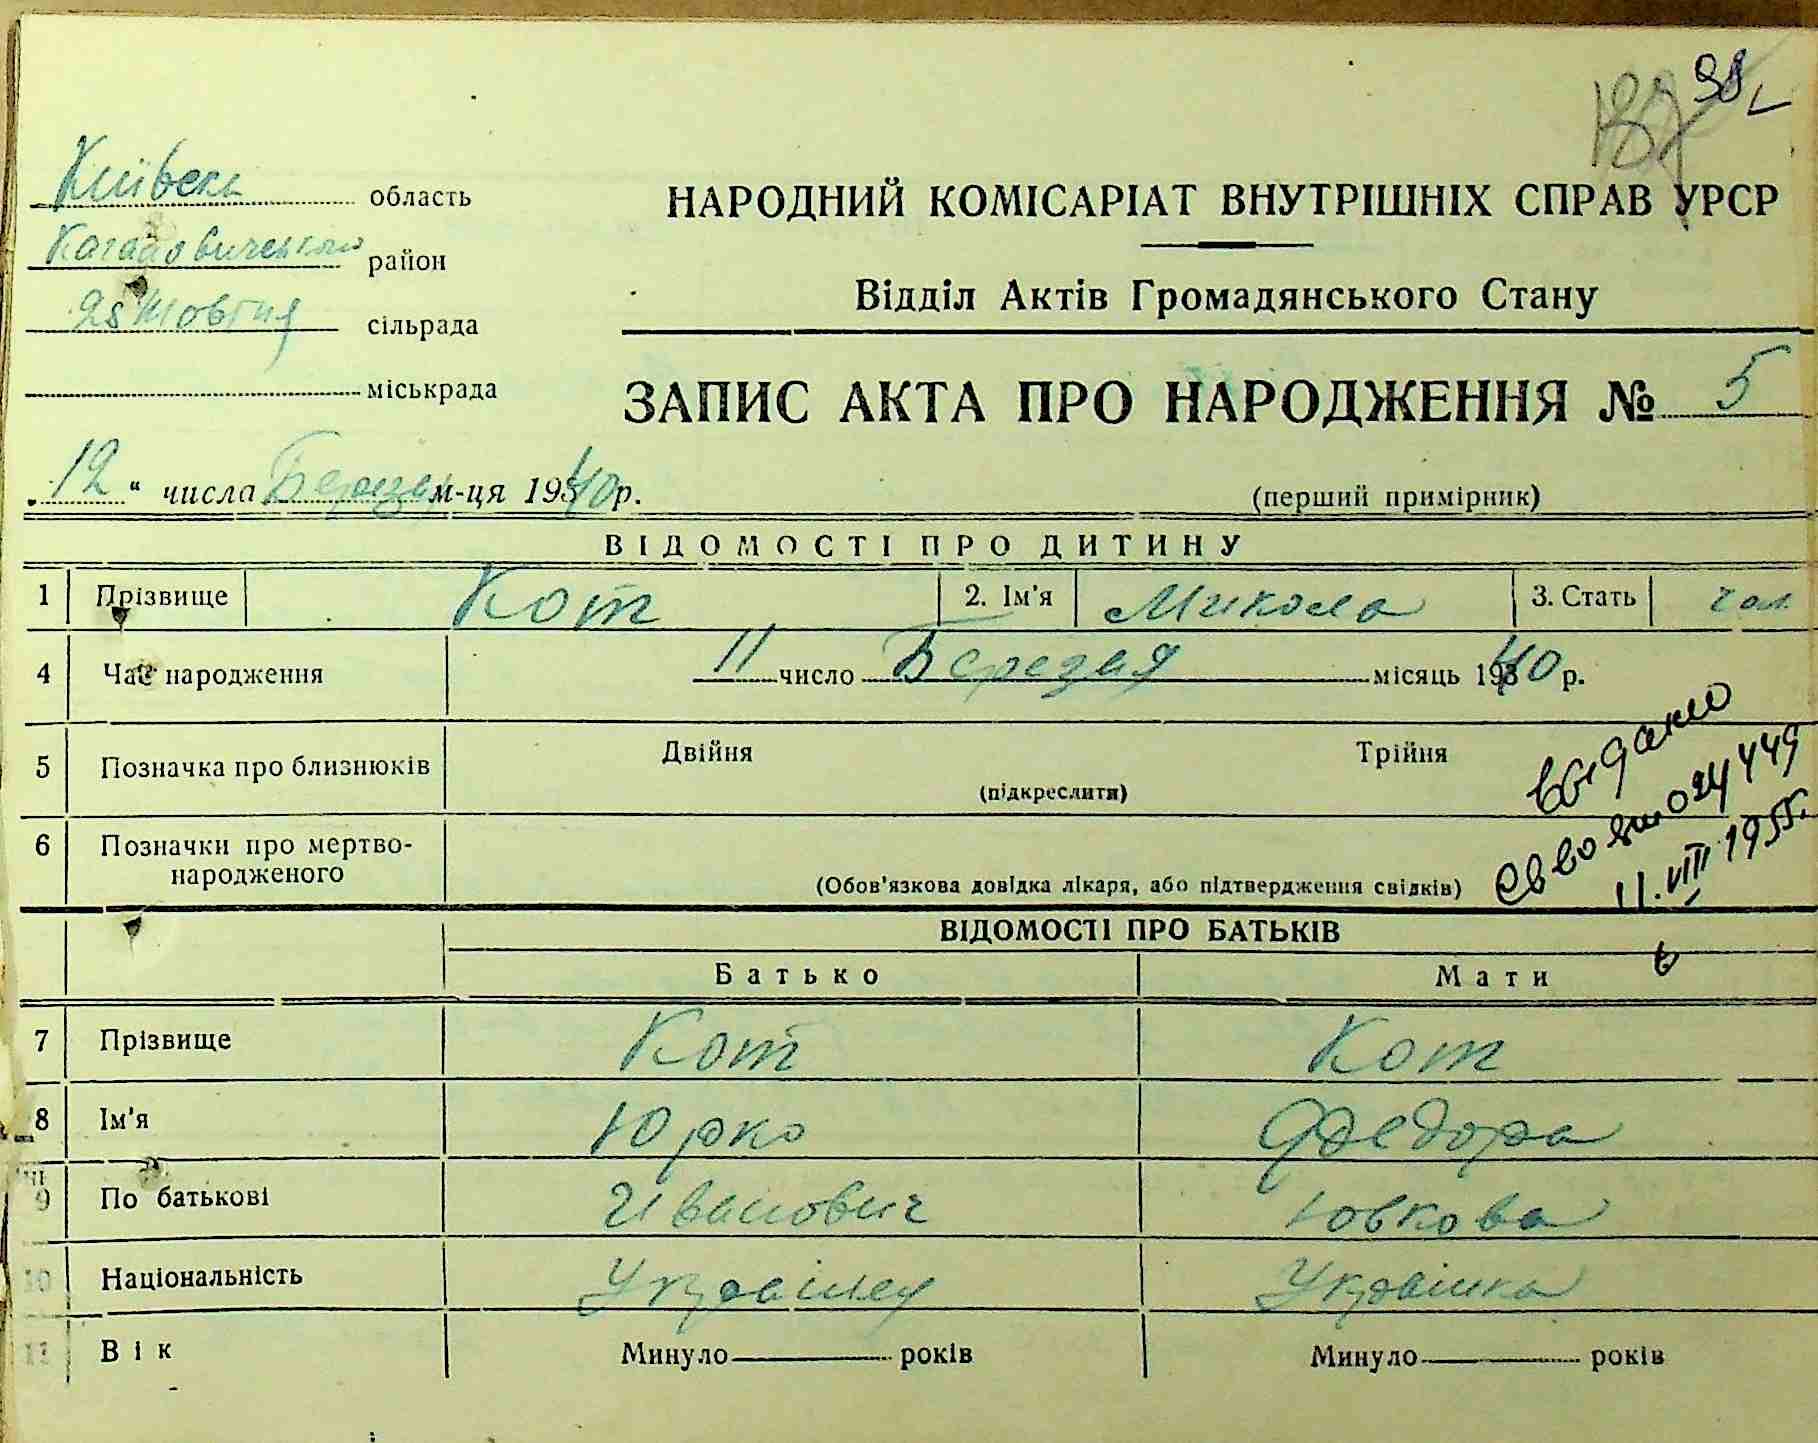 98
187
Київськ область
НАРОДНИЙ КОМІСАРІАТ ВНУТРІШНІХ СПРАВ УРСР
Кагановичський район
Відділ Актів Громадянського Стану
28 Жовтня сільрада
міськрада
ЗАПИС АКТА ПРО НАРОДЖЕННЯ № 5
„12“ числа Березня м-ця 1940 р.
(перший примірник)
ВІДОМОСТІ ПРО ДИТИНУ
1 Прізвище Кот 2. Ім'я Микола 3. Стать чол
4 Час народження 11 число Березня місяць 1940 р.
5 Позначка про близнюків Двійня Трійня
(підкреслити)
6 Позначки про мертво-
народженого
(Обов'язкова довідка лікаря, або підтвердження свідків)
видано
024449
11.VIII 1955г.
ВІДОМОСТІ ПРО БАТЬКІВ
Батько Мати
7 Прізвище Кот Кот
8 Ім'я Юрко Федора
9 По батькові Иванович Ювкова
10 Національність Українец Українка
11 Вік Минуло років Минуло років